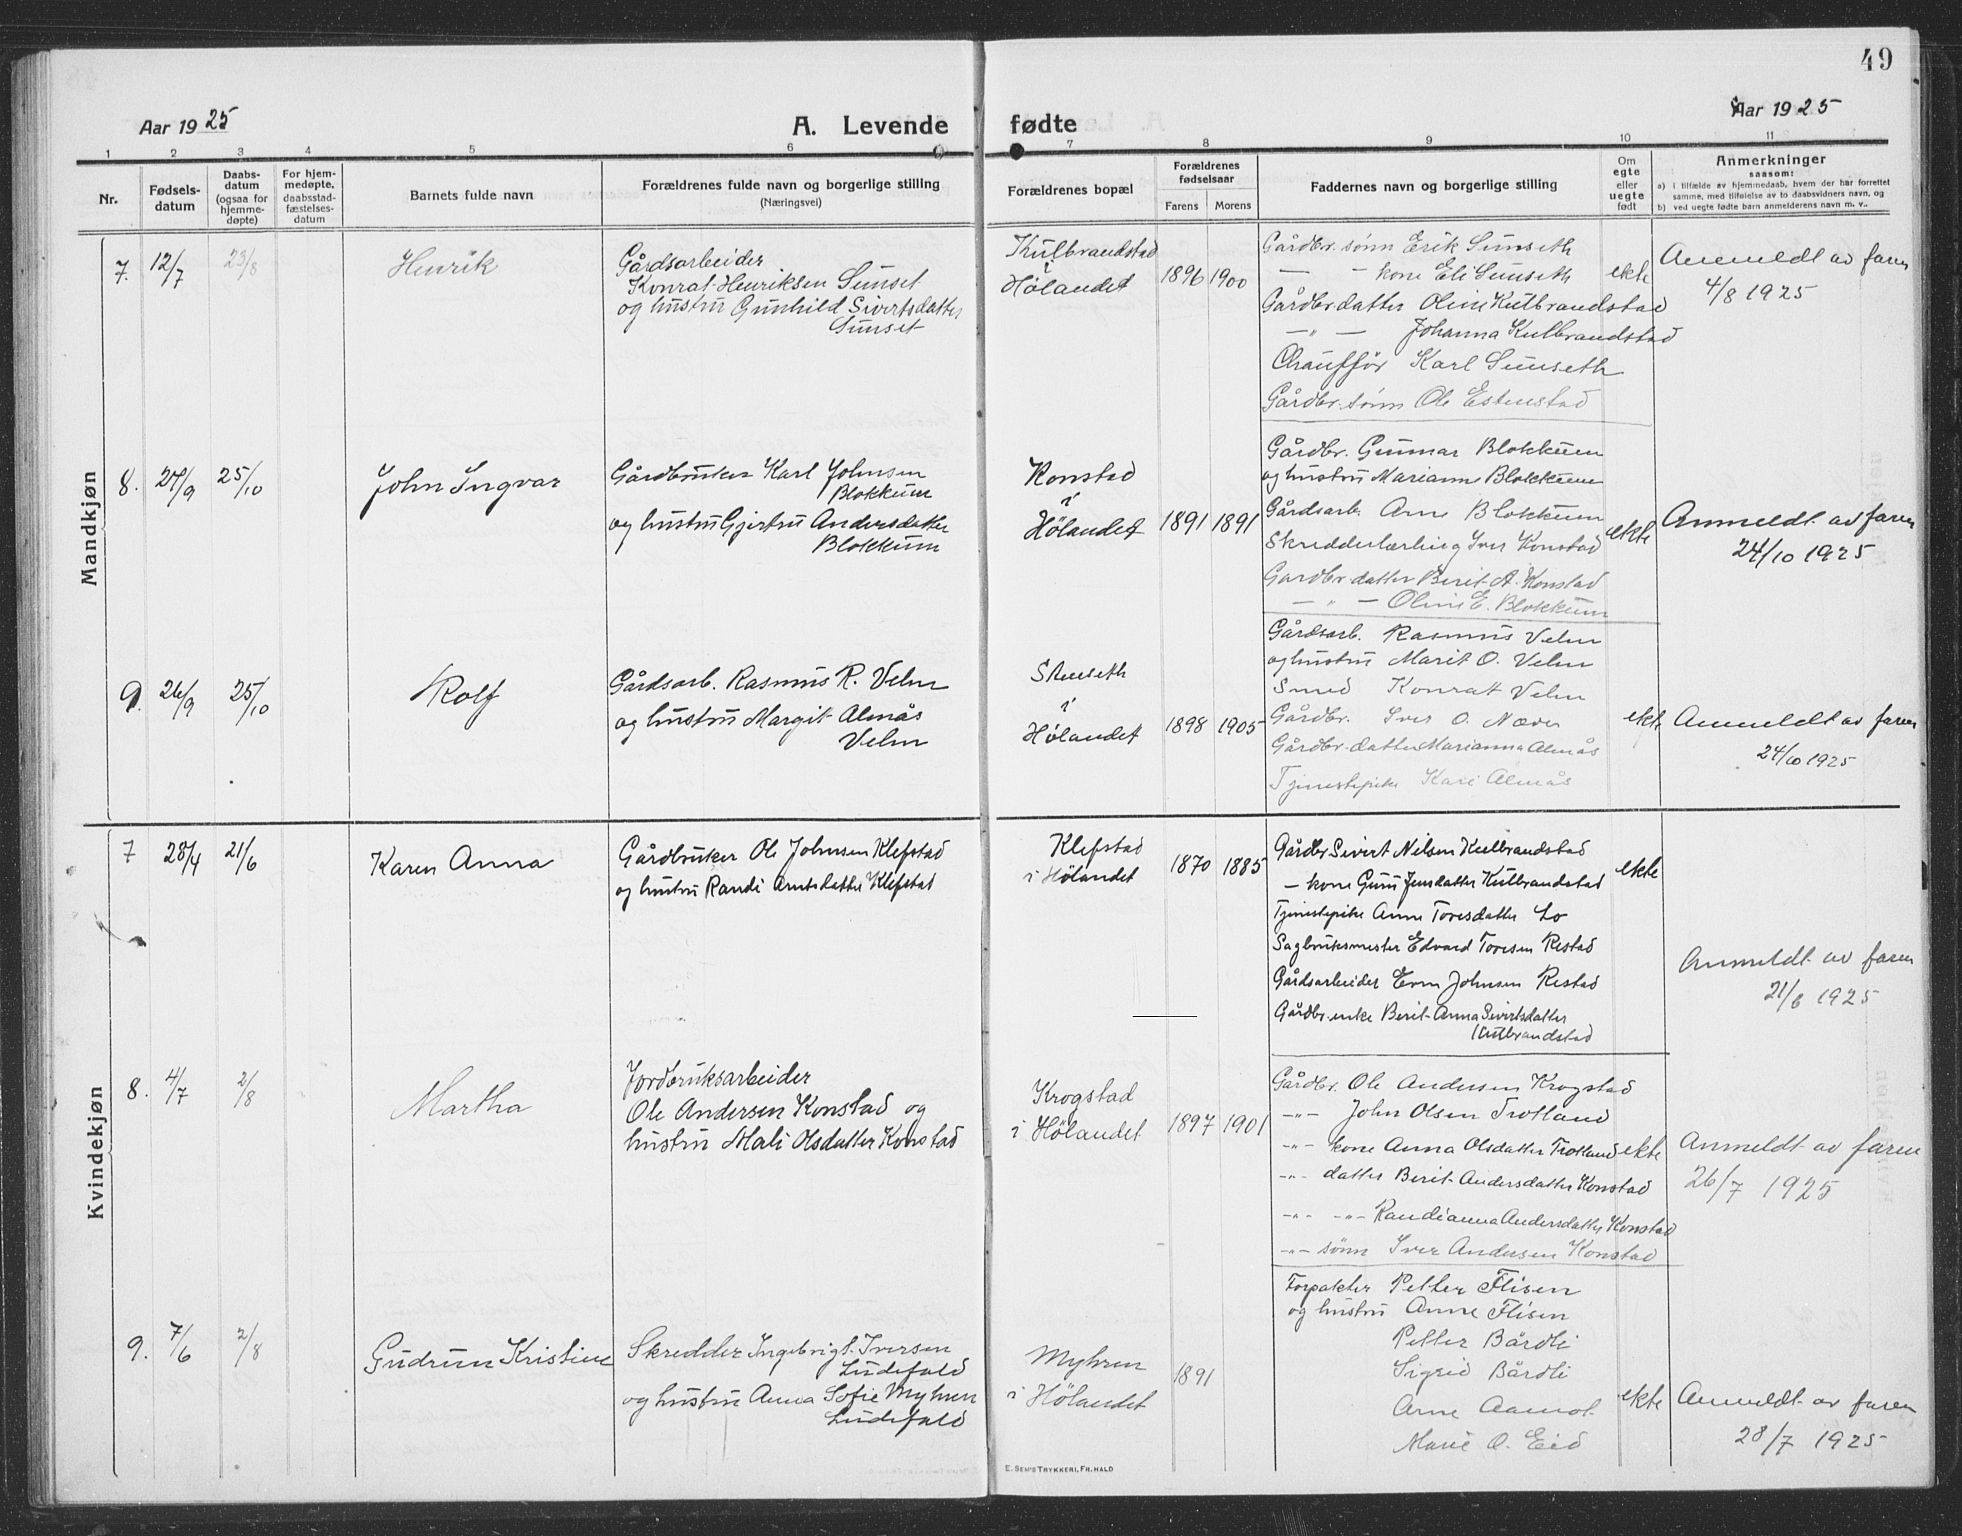 49
Aar 1925
A. Levende
fødte
Aar 1925
1 2 3 4 5 6 7 8 9 10 11
Nr.
Fødsels-
datum
Daabs-
datum
(ogsaa for
hjemme-
døpte)
For hjem-
medøpte,
daabsstad-
fæstelses-
datum
Barnets fulde navn
Forældrenes fulde navn og borgerlige stilling
(Næringsvei)
Forældrenes bopæl
Forældrenes
fødselsaar
Farens Morens
Faddernes navn og borgerlige stilling
Om
egte
eller
uegte
født
Anmerkninger
saasom:
a) i tilfælde av hjemmedaab, hvem der har forrettet
samme, med tilføielse av to daabsvidners navn, og
b) ved uegte fødte barn anmelderens navn m. v.
Mandkjøn
7. 12/7 23/8 Henrik
Gårdsarbeider
Konrat Henriksen Sunset
og hustru Gunhild Sivertsdatter
Sunset
Kulbrandstad
i
Hølandet
1896 1900
Gårdbr. sønn Erik Sunseth
— - kone Eli Sunseth
Gårdbr datter Oline Kulbrandstad
— " — Johanna Kulbrandstad
Chauffør Karl Sunseth
Gårdbr. sønn Ole Estenstad
ekte
Anmeldt av faren
4/8 1925
8. 27/9 25/10 John Ingvar
Gårdbruker Karl Johnsen
Blokkum
og hustru Gjertru Andersdatter
Blokkum
Konstad
i
Hølandet
1891 1891
Gårdbr. Gunnar Blokkum
og hustru Mariann Blokkum
Gårdsarb. Arne Blokkum
Skredderlærling Iver Konstad
Gardbr datter Berit A. Konstad
— " — Oline E. Blokkum
ekte
Anmeldt av faren
24/10 1925
9. 26/9 25/10 Rolf
Gårdsarb. Rasmus R. Velm
og hustru Margit Almås
Velm
i
Hølandet
1898 1905
Gårdsarb. Rasmus Velm
og hustru Marit O. Velm
Smed Konratt Velm
Gårdbr. Iver O. Næver
Gårdbr. datter Marianna Almås
Tjenestepike Kari Almås
ekte
Anmeldt av faren
24/10 1925
Kvindekjøn
7 28/4 21/6 Karen Anna
Gårdbruker Ole Johnsen Klefstad
og hustru Randi Arntsdatter Klefstad
Klefstad
i Hølandet
1870 1885
Gårdbr Sivert Nilsen Kulbrandstad
— kone Guru Jensdatter Kulbrandstad
Tjenestepike Anne Toresdatter Lo
Sagbruksmester Edvard Toresen Restad
Gårdsarbeider Even Johnsen Restad
Gårdbr. enke Berit-Anna Sivertsdatter
Kulbrandstad
ekte
Anmeldt av faren
21/6 1925
8. 4/7 2/8 Martha
Jordbruksarbeider
Ole Andersen Konstad og
hustru Mali Olsdatter Konstad
Krogstad
i Hølandet
1897 1901
Gårdbr. Ole Andersen Krogstad
-"- John Olsen Trotland
-"- kone Anna Olsdatter Trotland
-"- datter Berit Andersdatter Konstad
-"- -"- Randianna Andersdatter Konstad
-"- sønn Iver Andersen Konstad
ekte
Anmeldt av faren
26/7 1925
9. 7/6 2/8 Gudrun Kristine
Skredder Ingebrigt Iversen
Ludefald
og hustru Anna Sofie Myhren
Ludefald
Myhren
i Hølandet
1891
Forpakter Petter Flisen
og hustru Anne Flisen
Petter Bårdli
Sigrid Bårdli
Arne Aamot
Marie O. Eid
ekte
Anmeldt av faren
28/7 1925
E. Sem's Trykkeri, Fr.hald